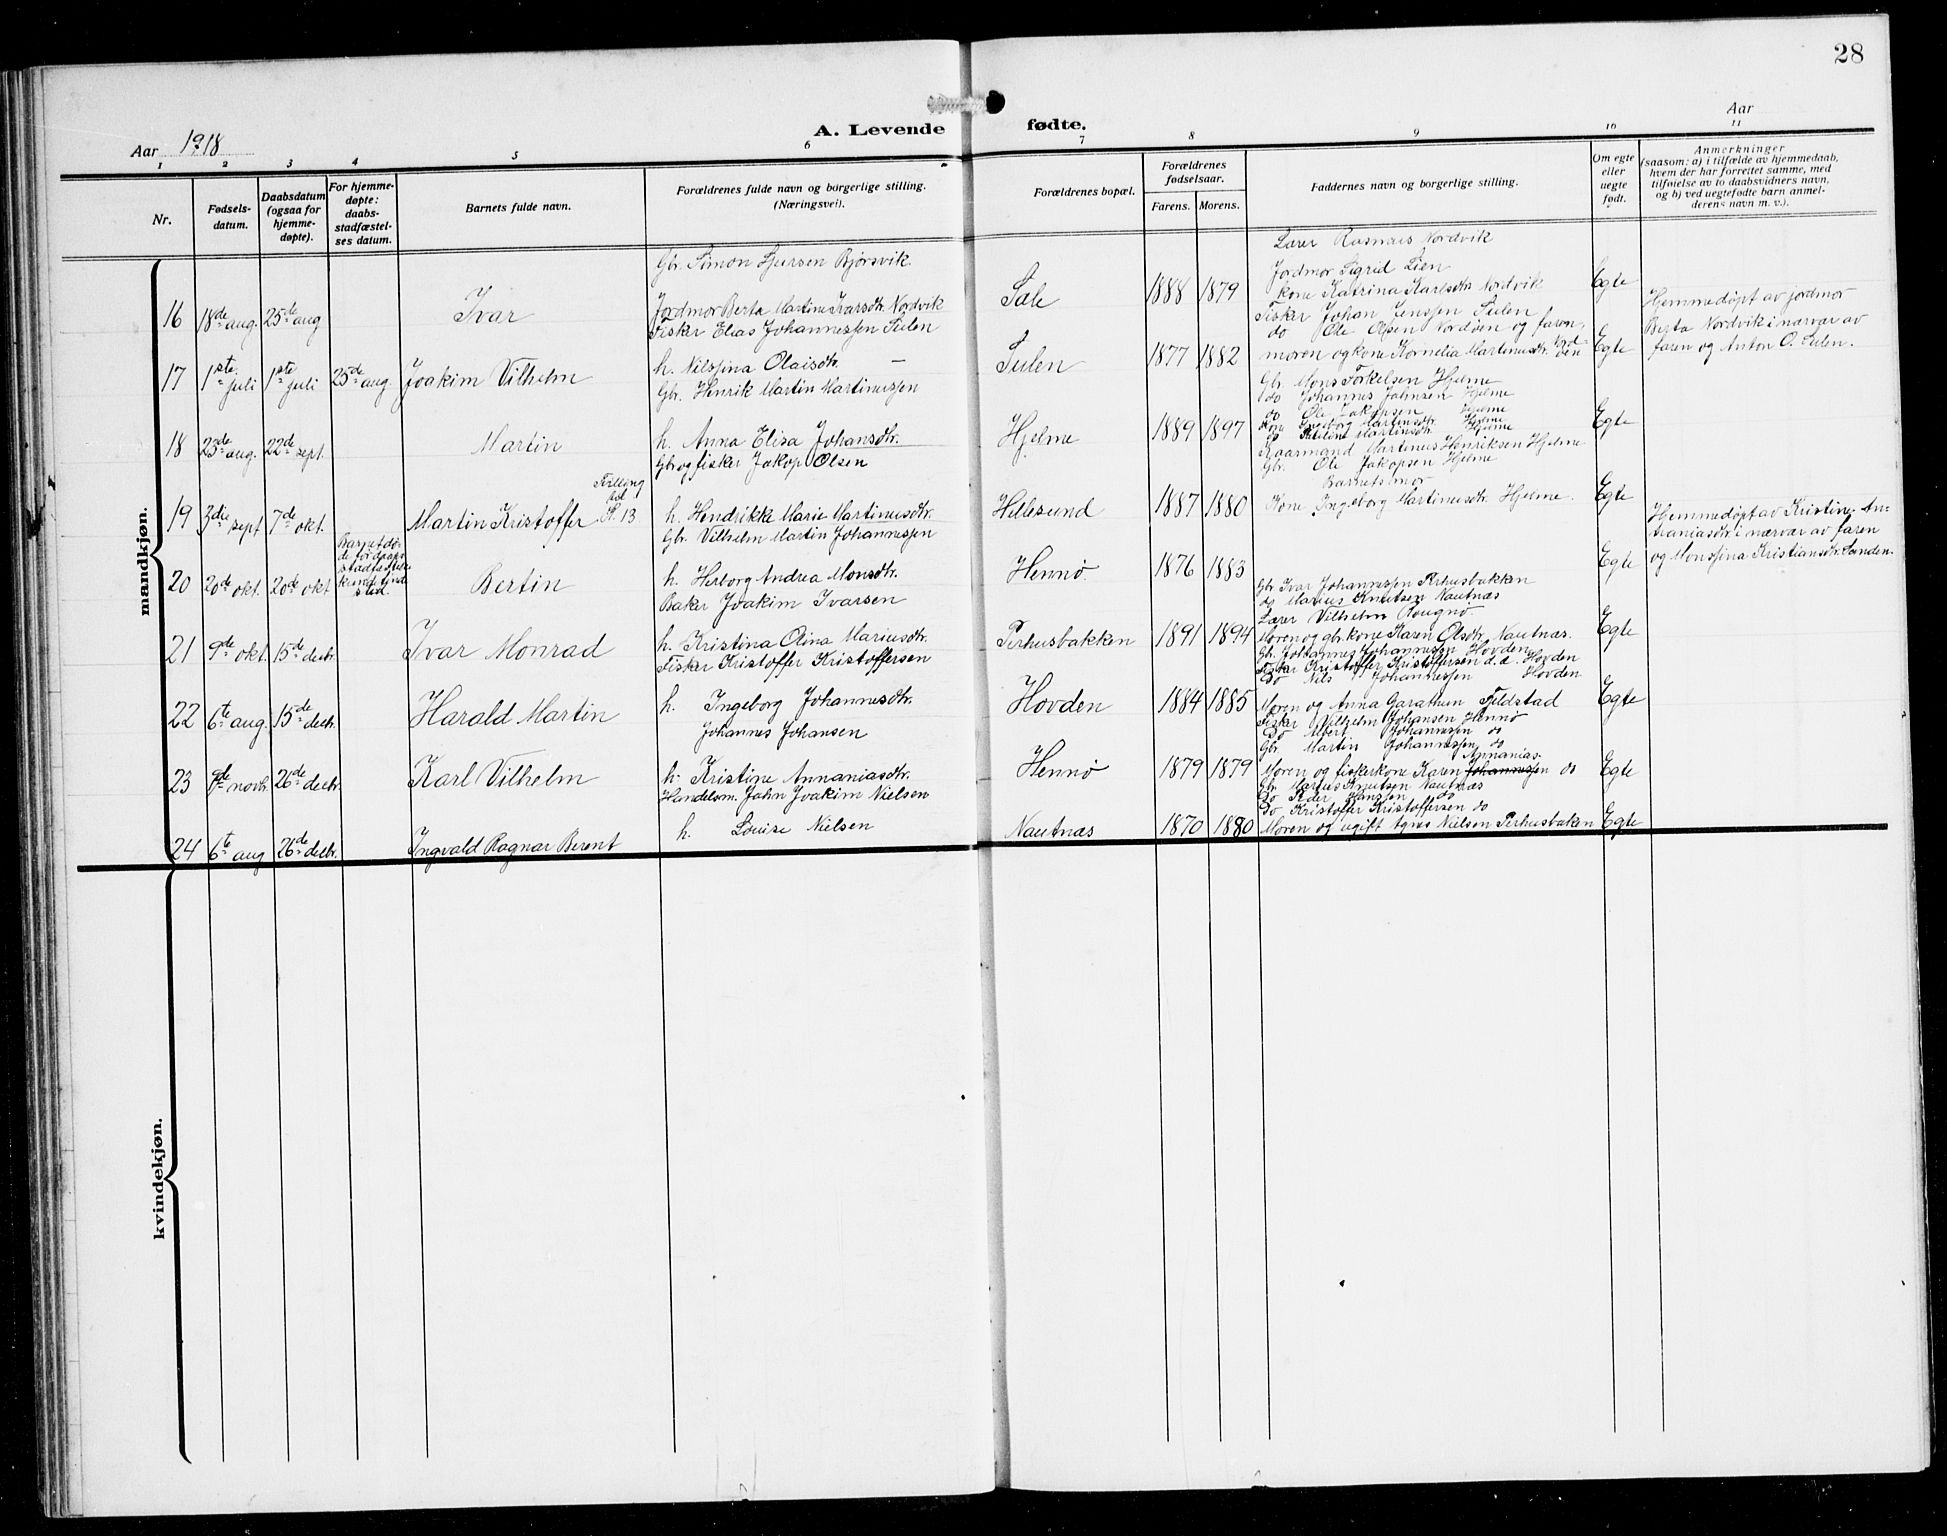 28
Aar 1918
A. Levende fødte.
Aar
1 2 3 4 5 6 7 8 9 10 11
Nr.
Fødsels-
datum.
Daabsdatum
(ogsaa for
hjemme-
døpte).
For hjemme-
døpte:
daabs-
stadfæstel-
ses datum.
Barnets fulde navn.
Forældrenes fulde navn og borgerlige stilling.
(Næringsvei).
Forældrenes bopæl.
Forældrenes
fødselsaar.
Farens. Morens.
Faddernes navn og borgerlige stilling.
Om egte
eller
uegte
født.
Anmerkninger
(saasom: a) i tilfælde av hjemmedaab,
hvem der har forrettet samme, med
tilføielse av to daabsvidners navn,
og b) ved uegtefødte barn anmel-
derens navn m. v.).
mandkjøn.
16 18de aug. 25de aug Ivar
Gbr. Simon Sjursen Bjørsvik
Jordmor Berta Martine Ivarsdtr. Nordvik
Sæle 1888 1879
Lærer Rasmus Nordvik
Jordmor Sigrid Lien
kone Katrina Karlsdtr Nordvik
Egte
17 1ste juli 1ste juli 25de aug Joakim Vilhelm
Fisker Elias Johannessen Sulen
h. Nilssina Olaisdtr. —
Sulen 1877 1882
Fisker Johan Jenssen Sulen
do Ole Olsen Nordøen og faren,
moren og kone Kornelia Martinusdtr.
Egte
Hjemmedøpt av jordmor
Berta Nordvik i nærvær av
faren og Anton O. Sulen.
18 23de aug. 22de sept. Martin
Gbr. Henrik Martin Martinussen
h. Anna Elisa Johansdtr.
Hjelme 1889 1897
Gbr. Mons Torkelsen Hjelme
do Johannes Johnsen Hjelme
do Ole Jakopsen Hjelme
Kone Ingeborg Martinsdtr. Hjelme
do Martinsdtr. Hjelme
Egte
19 3die sept 7de okt. Martin Kristoffer
Tvilling
No. 13
Gbr og fisker Jakop Olsen
h. Hendrikke Marie Martinusdtr.
Hillesund 1887 1880
Kaarmand Martinus Henriksen Hjelme
Gbr. Ole Jakopsen Hjelme
Barnets mor
Kone Ingeborg Martinusdtr. Hjelme.
Egte
20 20de okt. 20de okt Bertin
Gbr. Vilhelm Martin Johannessen
h. Herborg Andrea Monsdtr.
Hennø 1876 1883
Egte
Hjemmedøpt av Kristin An-
naniasdtr i nærvær av faren
og Monssina Kristiansdtr. Sanden.
21 9de okt. 15de decbr. Ivar Monrad
Baker Joakim Ivarsen
h. Kristina Olina Mariusdtr.
Perhusbakken 1891 1894
Gbr Ivar Johannessen Perhusbakken
do Marius Knutsen Nautnæs
Lærer Vilhelm Rougnø
Moren og gbr.kone Karen Olsdtr. Nautnæs.
Egte
22 6te aug. 15de decbr. Harald Martin
Fisker Kristoffer Kristoffersen
h. Ingeborg Johannesdtr.
Hovden 1884 1885
Gbr. Johannes Johannessen Hovden
Fisker Kristoffer Kristoffersen d.æ. Hovden
Do Nils Johannessen Hovden
Moren og Anna Garathun Tjeldstad
Egte
23 9de novbr. 26de decbr. Karl Vilhelm
Johannes Johansen
h. Kristine Annaniasdtr.
Hennø 1879 1879
Fisker Vilhelm Johansen Hennø
Do Albert Johannessen do
Gbr. Martin Johannessen do
Annanias-
Moren og fiskerkone Karen Johannessen do
Egte
24 6te aug 26de decbr. Ingvald Ragnar Berent
Handelsm. John Joakim Nielsen
h. Louise Nielsen
Nautnæs 1870 1880
Gbr. Marius Knutsen Nautnæs
Do Peder Hansen do
Do Kristoffer Kristoffersen do
Moren og ugift Agnes Nielsen Perhusbaken
Egte
kvindekjøn.